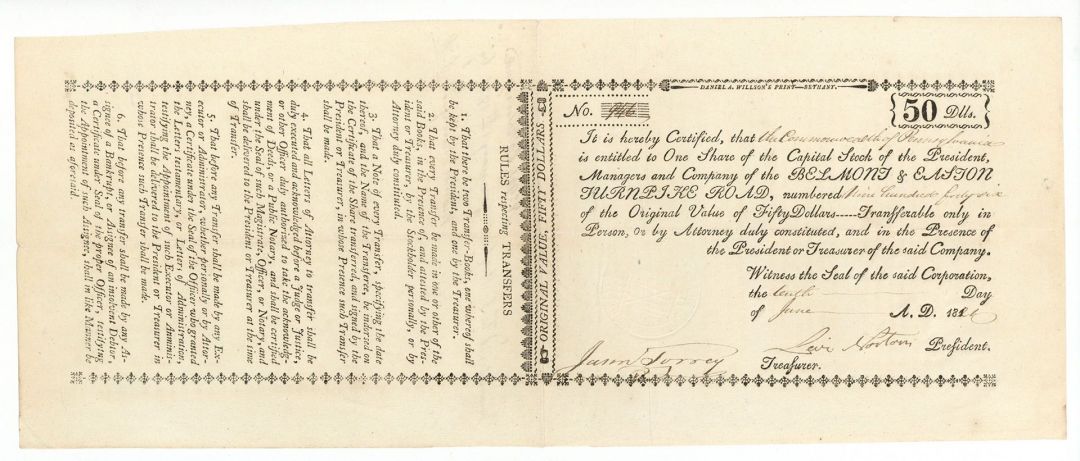 DANIEL A. WILLSON'S PRINT—BETHANY.
No. 946
50 Dlls.
It is hereby Certified, that the Commonwealth of Pennsylvania
is entitled to One Share of the Capital Stock of the President,
Managers and Company of the BELMONT & EASTON
TURNPIKE ROAD, numbered Nine hundred forty six
of the Original Value of Fifty Dollars----Transferable only in
Person, or by Attorney duly constituted, and in the Presence of
the President or Treasurer of the said Company.
Witness the Seal of the said Corporation,
the tenth Day
of June A. D. 1826
President.
Jason Torrey
Treasurer.
ORIGINAL VALUE, FIFTY DOLLARS
RULES respecting TRANSFERS
1. That there be two Transfer-Books, one whereof shall
be kept by the President, and one by the Treasurer.
2. That every Transfer be made in one or other of the
said Books, in the Presence of, and attested by the Pres-
ident or Treasurer, by the Stockholder personally, or by
Attorney duly constituted.
3. That a Note of every Transfer, specifying the date
thereof, and the Name of the Transferee, be endorsed on
the Certificate of the Share transferred, and signed by the
President or Treasurer, in whose Presence such Transfer
shall be made.
4. That all Letters of Attorney to transfer shall be
duly executed and acknowledged before a Judge or Justice,
or other Officer duly authorised to take the acknowledg-
ment of Deeds, or a Public Notary, and shall be certified
under the Seal of such Magistrate, Officer, or Notary, and
shall be delivered to the President or Treasurer at the time
of Transfer.
5. That before any Transfer shall be made by any Ex-
ecutor or Administrator, whether personally or by Attor-
ney, a Certificate under the Seal of the Officer who granted
the Letters testamentary, or Letters of Administration,
testifying the Appointment of such Executor or Adminis-
trator shall be delivered to the President or Treasurer in
whose Presence such Transfer shall be made.
6. That before any transfer shall be made by any As-
signee of a Bankrupt, or Assignee of an insolvent Debtor,
a Certificate under Seal of the proper Officer, testifying
the Appointment of such Assignee, shall in like Manner be
deposited as aforesaid.